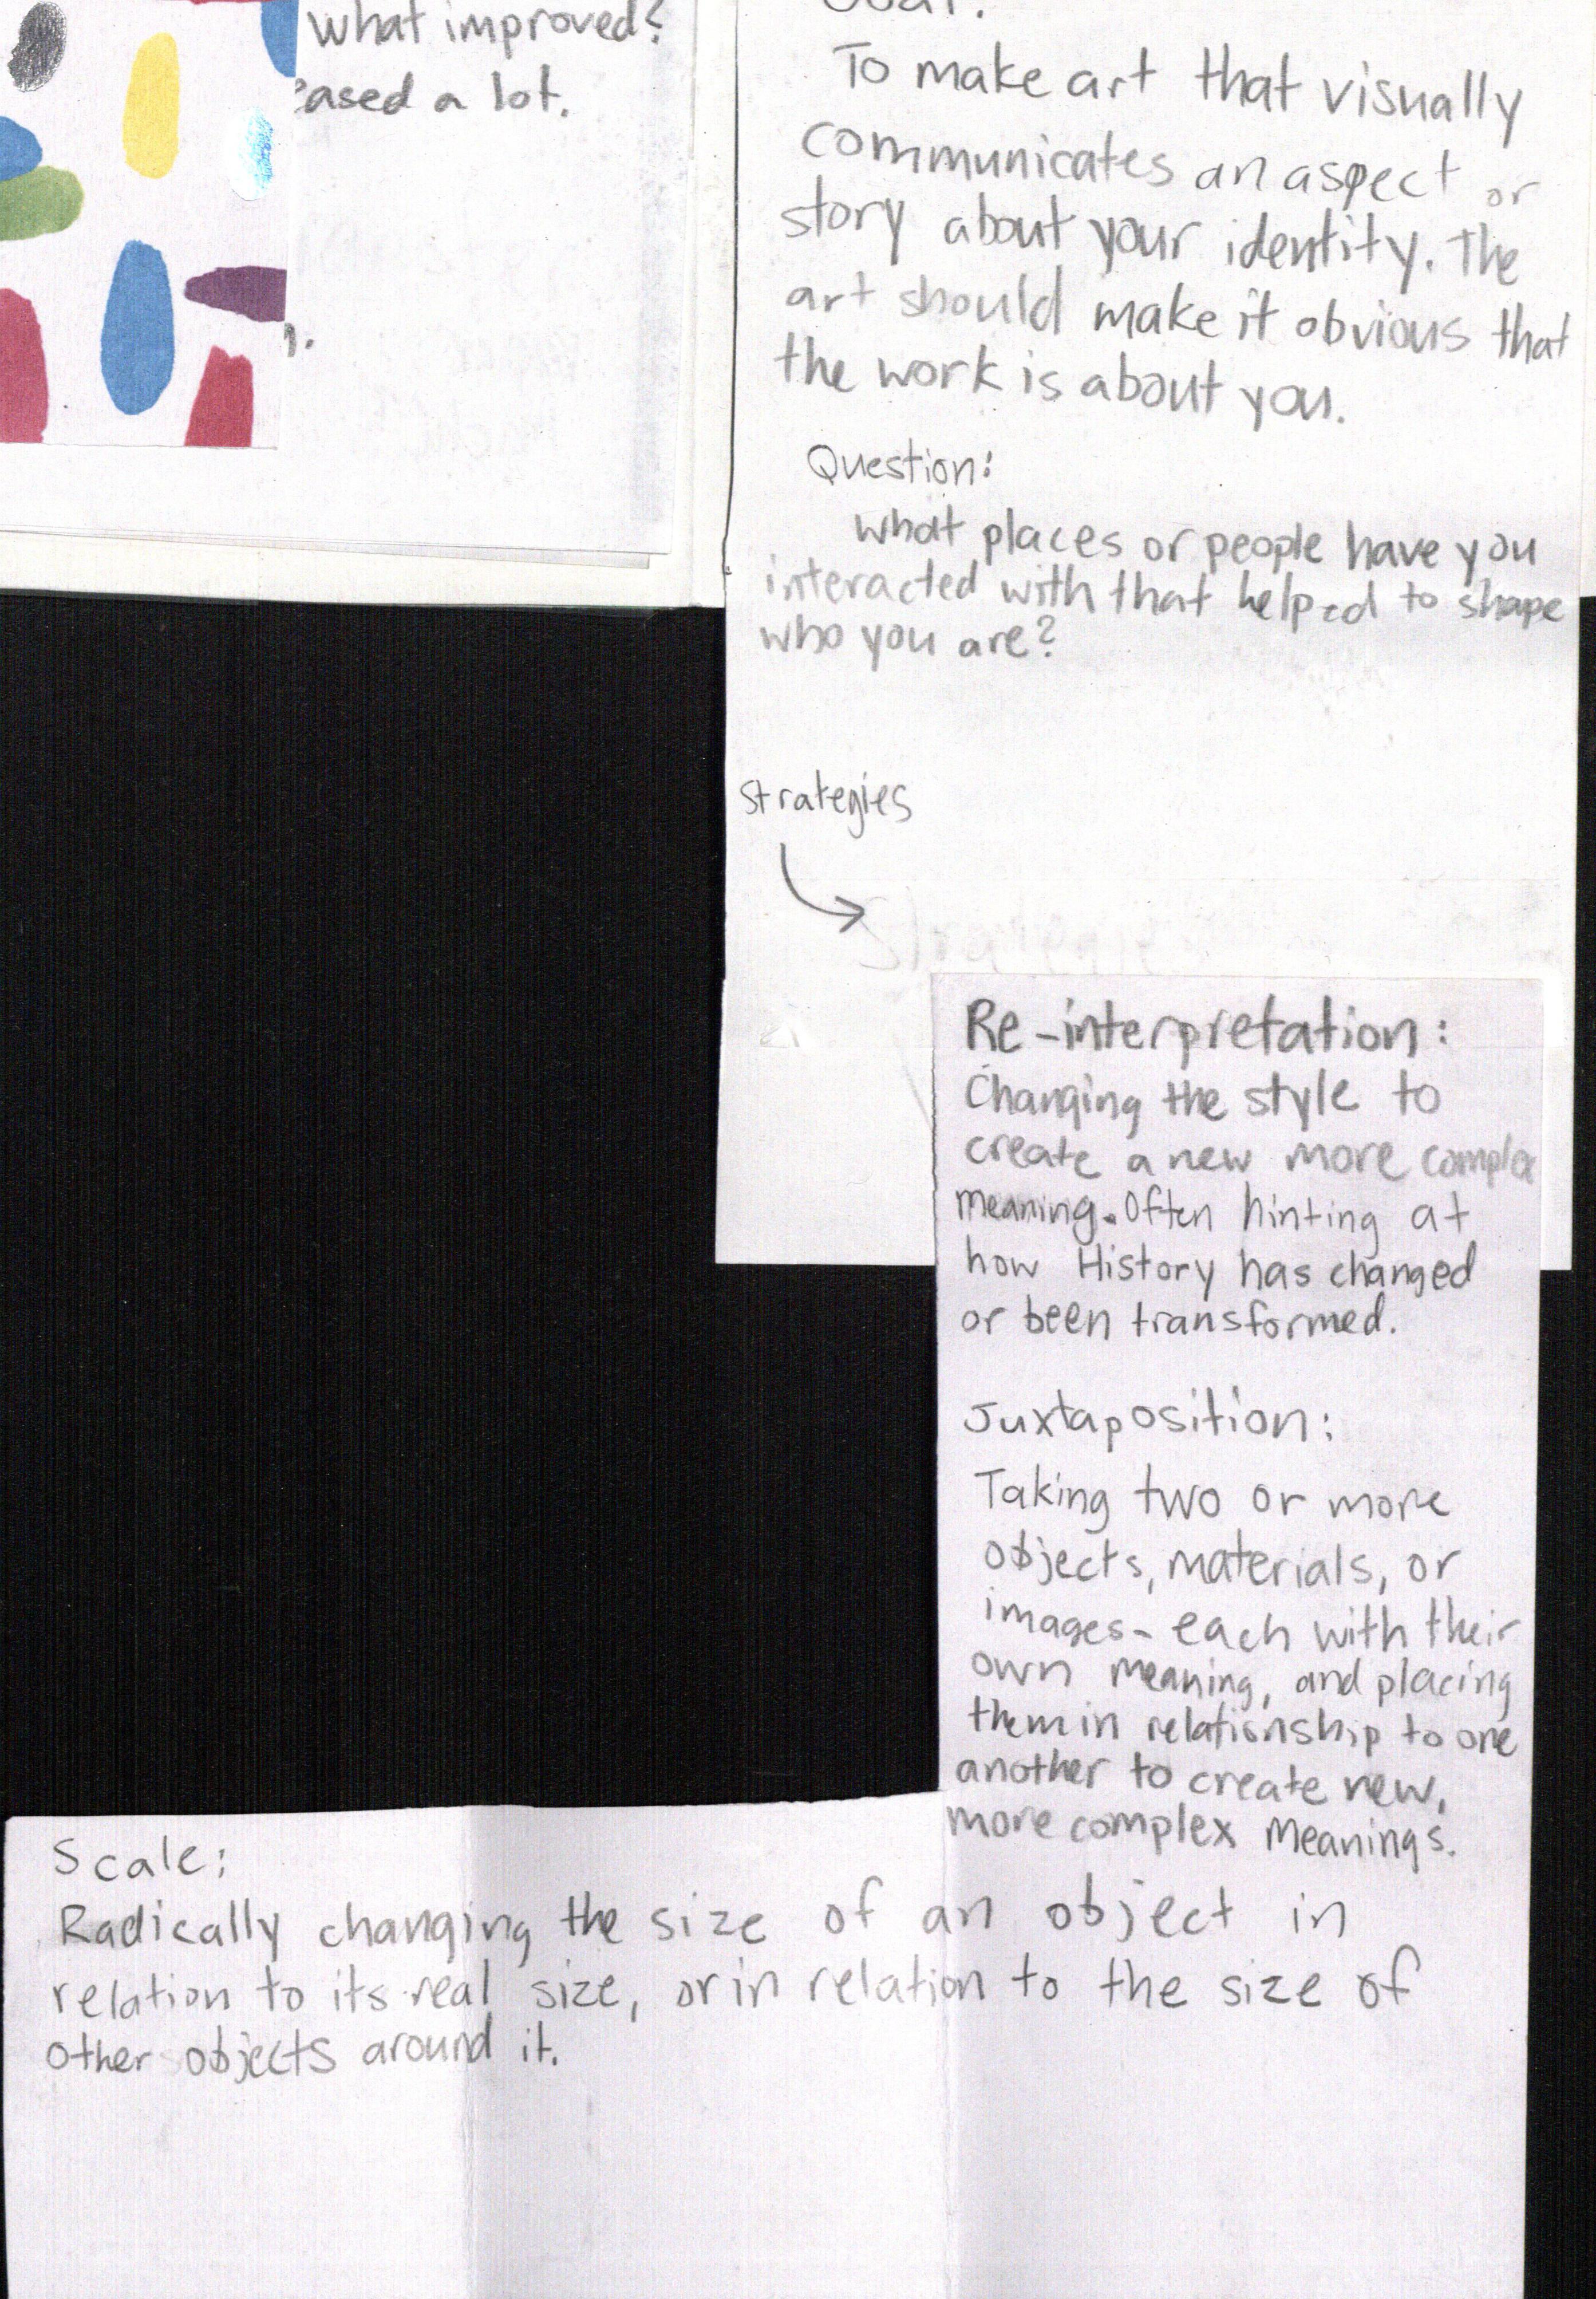 what improved?
eased a lot.
To make art that visually
communicates an aspect or
story about your identity. The
art should make it obvious that
the work is about you.
Question:
what places or people have you
interacted with that helped to shape
who you are?
Strategies
Re-interpretation:
Changing the style to
create a new more complex
meaning. Often hinting at
how History has changed
or been transformed.
Juxtaposition:
Taking two or more
objects, materials, or
images- each with their
own meaning, and placing
them in relationship to one
another to create new,
more complex meanings.
Scale:
Radically changing the size of an object in
relation to its real size, or in relation to the size of
other objects around it.